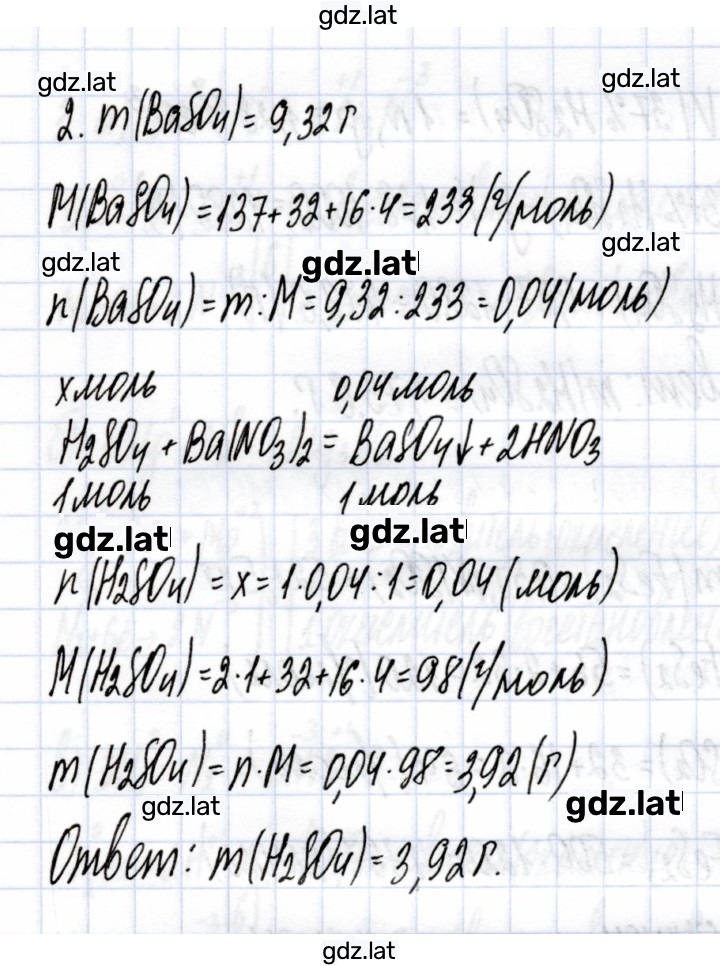 gdz.lat
gdz.lat
gdz.lat
2. m(BaSO₄)= 9,32 г
M(BaSO₄)=137+32+16·4=233(г/моль)
gdz.lat
gdz.lat
gdz.lat
n(BaSO₄)=m:M=9,32:233=0,04(моль)
x моль 0,04 моль
H₂SO₄ + Ba(NO₃)₂ = BaSO₄↓ + 2HNO₃
1 моль 1 моль
gdz.lat
gdz.lat
n(H₂SO₄)=x=1·0,04:1=0,04(моль)
M(H₂SO₄)=2·1+32+16·4=98(г/моль)
m(H₂SO₄)=n·M=0,04·98=3,92(г)
gdz.lat
gdz.lat
Ответ: m(H₂SO₄)=3,92 г.
gdz.lat